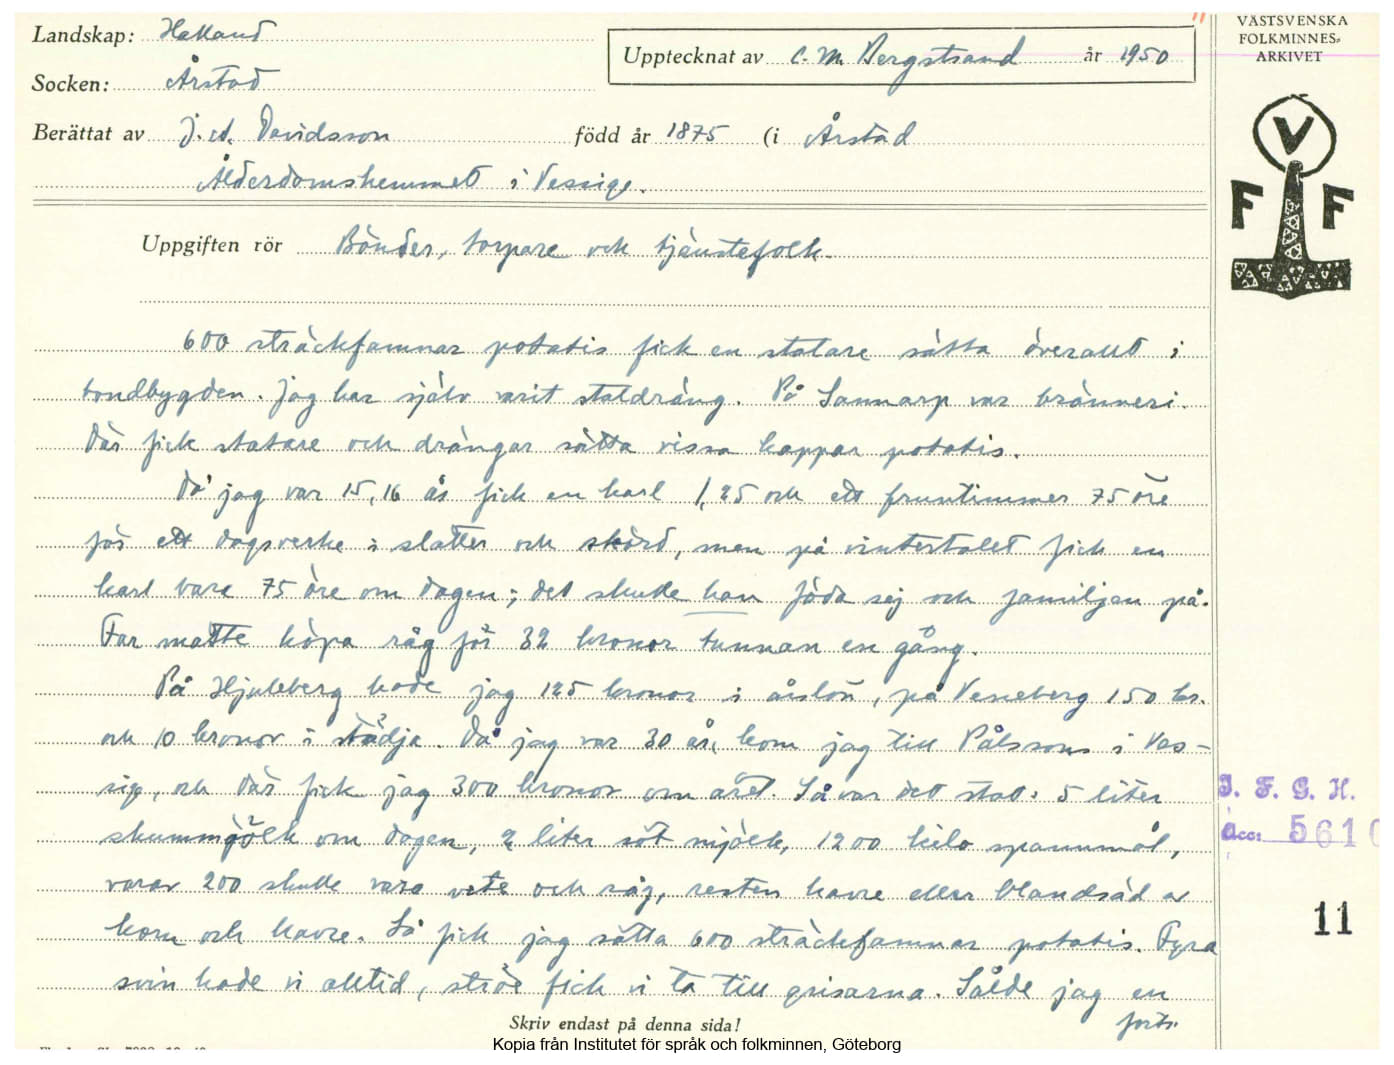 Landskap: Halland
Socken: Årstad
Upptecknat av C. M. Bergstrand år 1950
Berättat av J. A. Davidsson född år 1875 (i Årstad
Ålderdomshemmet i Vessige.
Uppgiften rör Bönder, torpare och tjänstefolk.
600 sträckfamnar potatis fick en statare sätta överallt i
landbygden. Jag har själv varit staldräng. På Sannarp var bränneri.
Där fick statare och drängar sätta vissa kappar potatis.
Då jag var 15, 16 år fick en karl 1,25 och ett fruntimmer 75 öre
för ett dagsverke i slåtter och skörd, men på vintertalet fick en
karl bara 75 öre om dagen; det skulle han föda sej och familjen på.
Far måtte köpa råg för 32 kronor tunnan en gång.
På Hjuleberg hade jag 125 kronor i årslön, på Vesseberg 150 kr.
och 10 kronor i städja. Då jag var 30 år, kom jag till Pålssons i Ves-
sige, och där fick jag 300 kronor om året. Så var det stat: 5 liter
skummjölk om dagen, 2 liter söt mjölk, 1200 kilo spannmål,
varav 200 skulle vara vete och råg, resten havre eller blandsäd av
korn och havre. Så fick jag sätta 600 sträckfamnar potatis. Fyra
svin hade vi alltid, strö fick vi ta till grisarna. Sålde jag en
forts.
Skriv endast på denna sida!
Kopia från Institutet för språk och folkminnen, Göteborg
VÄSTSVENSKA
FOLKMINNES-
ARKIVET
V
F F
I. F. G. H.
Acc: 5610
11